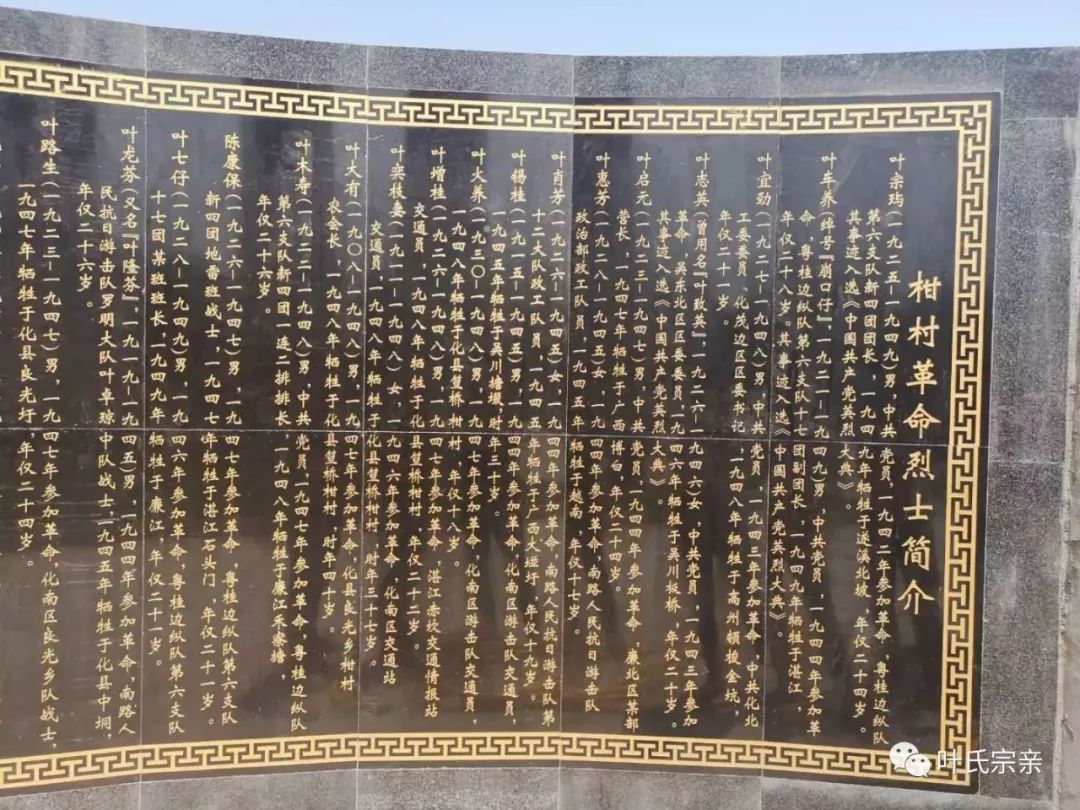 柑村革命烈士简介
叶宗玙(一九二五—一九四九)男,中共党员,一九四二年参加革命,粤桂边纵队
第六支队新四团团长,一九四九年牺牲于遂溪北坡,年仅二十四岁。
其事迹入选《中国共产党英烈大典》。
叶车养(绰号“崩口仔”,一九二一—一九四九)男,中共党员,一九四四年参加革
命,粤桂边纵队第六支队十七团副团长,一九四九年牺牲于湛江
年仅二十八岁。其事迹入选《中国共产党英烈大典》。
叶宜劲(一九二七—一九四八)男,中共党员,一九四三年参加革命,中共化北
工委委员、化茂边区区委书记,一九四八年牺牲于高州顿梭金坑,
年仅二十一岁。
叶志英(曾用名“叶致英”,一九二六—一九四六)女,中共党员,一九四三年参加
革命,吴东北区区委委员,一九四六年牺牲于吴川板桥,年仅二十岁。
其事迹入选《中国共产党英烈大典》。
叶启元(一九二三—一九四七)男,中共党员,一九四四年参加革命,廉北区某部
营长,一九四七年牺牲于广西博白,年仅二十四岁。
叶惠芳(一九二八—一九四五)女,一九四四年参加革命,南路人民抗日游击队
政治部政工队员,一九四五年牺牲于越南,年仅十七岁。
叶肖芳(一九二六—一九四五)女,一九四四年参加革命,南路人民抗日游击队第
十二大队政工队员,一九四五年牺牲于广西大垭圩,年仅十九岁。
叶锡桂(一九一五—一九四五)男,一九四四年参加革命,化南区游击队交通员,
一九四五年牺牲于吴川塘㙍,时年三十岁。
叶火养(一九三〇—一九四八)男,一九四七年参加革命,化南区游击队交通员,
一九四八年牺牲于化县笪桥柑村,年仅十八岁。
叶增桂(一九二六—一九四八)男,一九四七年参加革命,湛江赤坎交通情报站
交通员,一九四八年牺牲于化县笪桥柑村,年仅二十二岁。
叶奕枝妻(一九一一—一九四八)女,一九四六年参加革命,化南区交通站
交通员,一九四八年牺牲于化县笪桥柑村,时年三十七岁。
叶大有(一九〇八—一九四八)男,一九四七年参加革命,化县良光乡柑村
农会长,一九四八年牺牲于化县笪桥柑村,时年四十岁。
叶木寿(一九二二—一九四八)男,中共党员,一九四七年参加革命,粤桂边纵队
第六支队新四团一连二排排长,一九四八年牺牲于廉江禾寮塘,
年仅二十六岁。
陈康保(一九二六—一九四七)男,一九四七年参加革命,粤桂边纵队第六支队
新四团地雷班战士,一九四七年牺牲于湛江石头门,年仅二十一岁。
叶七仔(一九二八—一九四九)男,一九四六年参加革命,粤桂边纵队第六支队
十七团某班班长,一九四九年牺牲于廉江,年仅二十一岁。
叶龙芬(又名“叶隆芬”,一九一九—一九四五)男,一九四四年参加革命,南路人
民抗日游击队罗明大队叶卓琼中队战士,一九四五年牺牲于化县中垌,
年仅二十六岁。
叶路生(一九二三—一九四七)男,一九四七年参加革命,化南区良光乡队战士,
一九四七年牺牲于化县良光圩,年仅二十四岁。
叶氏宗亲